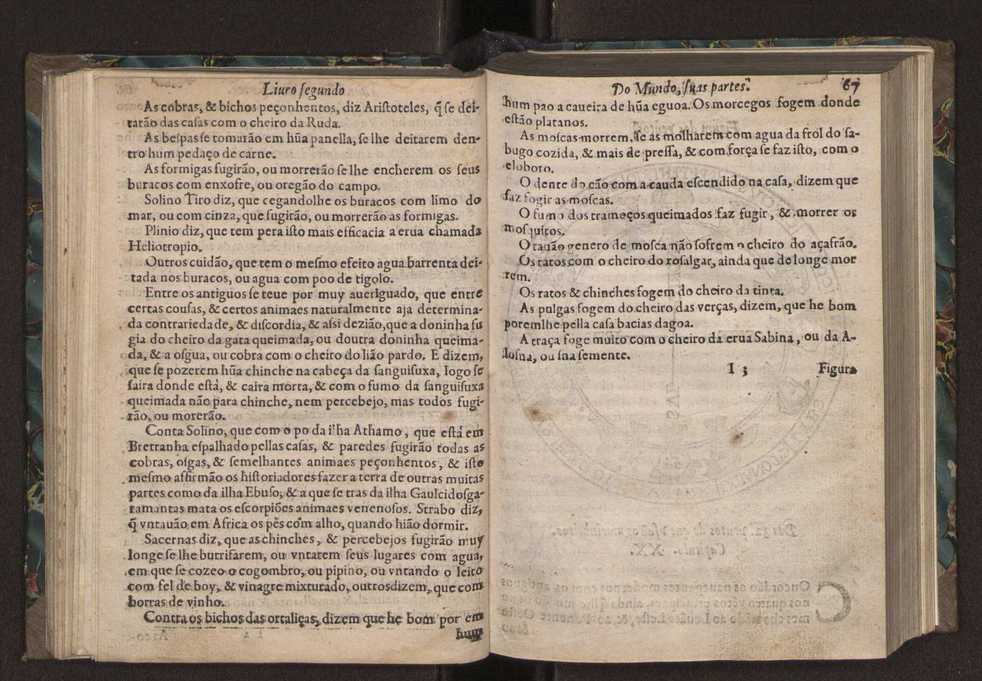 Liuro ſegundo
As cobras, & bichos peçonhentos, diz Ariſtoteles, q̃ ſe dei-
tarão das caſas com o cheiro da Ruda.
As beſpas ſe tomarão em hũa panella, ſe lhe deitarem den-
tro hum pedaço de carne.
As formigas fugirão, ou morrerão ſe lhe encherem os ſeus
buracos com enxofre, ou oregão do campo.
Solino Tiro diz, que cegandolhe os buracos com limo do
mar, ou com cinza, que fugirão, ou morrerão as formigas.
Plinio diz, que tem pera iſto mais efficacia a erua chamada
Heliotropio.
Outros cuidão, que tem o meſmo efeito agua barrenta dei-
tada nos buracos, ou agua com poo de tigolo.
Entre os antiguos ſe teue por muy aueriguado, que entre
certas couſas, & certos animaes naturalmente aja determina-
da contrariedade, & diſcordia, & aſsi dezião, que a doninha fu
gia do cheiro da gata queimada, ou doutra doninha queima-
da, & a oſgua, ou cobra com o cheiro do lião pardo. E dizem,
que ſe pozerem hũa chinche na cabeça da ſanguiſuxa, logo ſe
ſaira donde eſtá, & caira morta, & com o fumo da ſanguiſuxa
queimada não para chinche, nem percebejo, mas todos fugi-
rão, ou morerão.
Conta Solino, que com o po da ilha Athamo, que eſtá em
Bretranha eſpalhado pellas caſas, & paredes fugirão todas as
cobras, oſgas, & ſemelhantes animaes peçonhentos, & iſto
meſmo affirmão os hiſtoriadores fazer a terra de outras muitas
partes como da ilha Ebuſo, & a que ſe tras da ilha Gaulcidoſga-
ramantas mata os eſcorpiões animaes venenoſos. Strabo diz,
q̃ vntauão em Africa os pès com alho, quando hião dormir.
Sacernas diz, que as chinches, & percebejos fugirão muy
longe ſe lhe burrifarem, ou vntarem ſeus lugares com agua,
em que ſe cozeo o cogombro, ou pipino, ou vntando o leito
com fel de boy, & vinagre mixturado, outros dizem, que com
borras de vinho.
Contra os bichos das ortaliças, dizem que he bom por em
hum
Do Mundo, ſuas partes.
67
hum pao a caueira de hũa eguoa. Os morcegos fogem donde
eſtão platanos.
As moſcas morrem, ſe as molharem com agua da frol do ſa-
bugo cozida, & mais de preſſa, & com força ſe faz iſto, com o
eloboro.
O dente do cão com a cauda eſcendido na caſa, dizem que
faz fogir as moſcas.
O fumo dos tramoços queimados faz fugir, & morrer os
moſquitos.
O tauão genero de moſca não ſofrem o cheiro do açafrão.
Os ratos com o cheiro do roſalgar, ainda que de longe mor
rem.
Os ratos & chinches fogem do cheiro da tinta.
As pulgas fogem do cheiro das verças, dizem, que he bom
poremlhe pella caſa bacias dagoa.
A traça foge muito com o cheiro da erua Sabina, ou da A-
loſna, ou ſua ſemente.
I 3
Figura